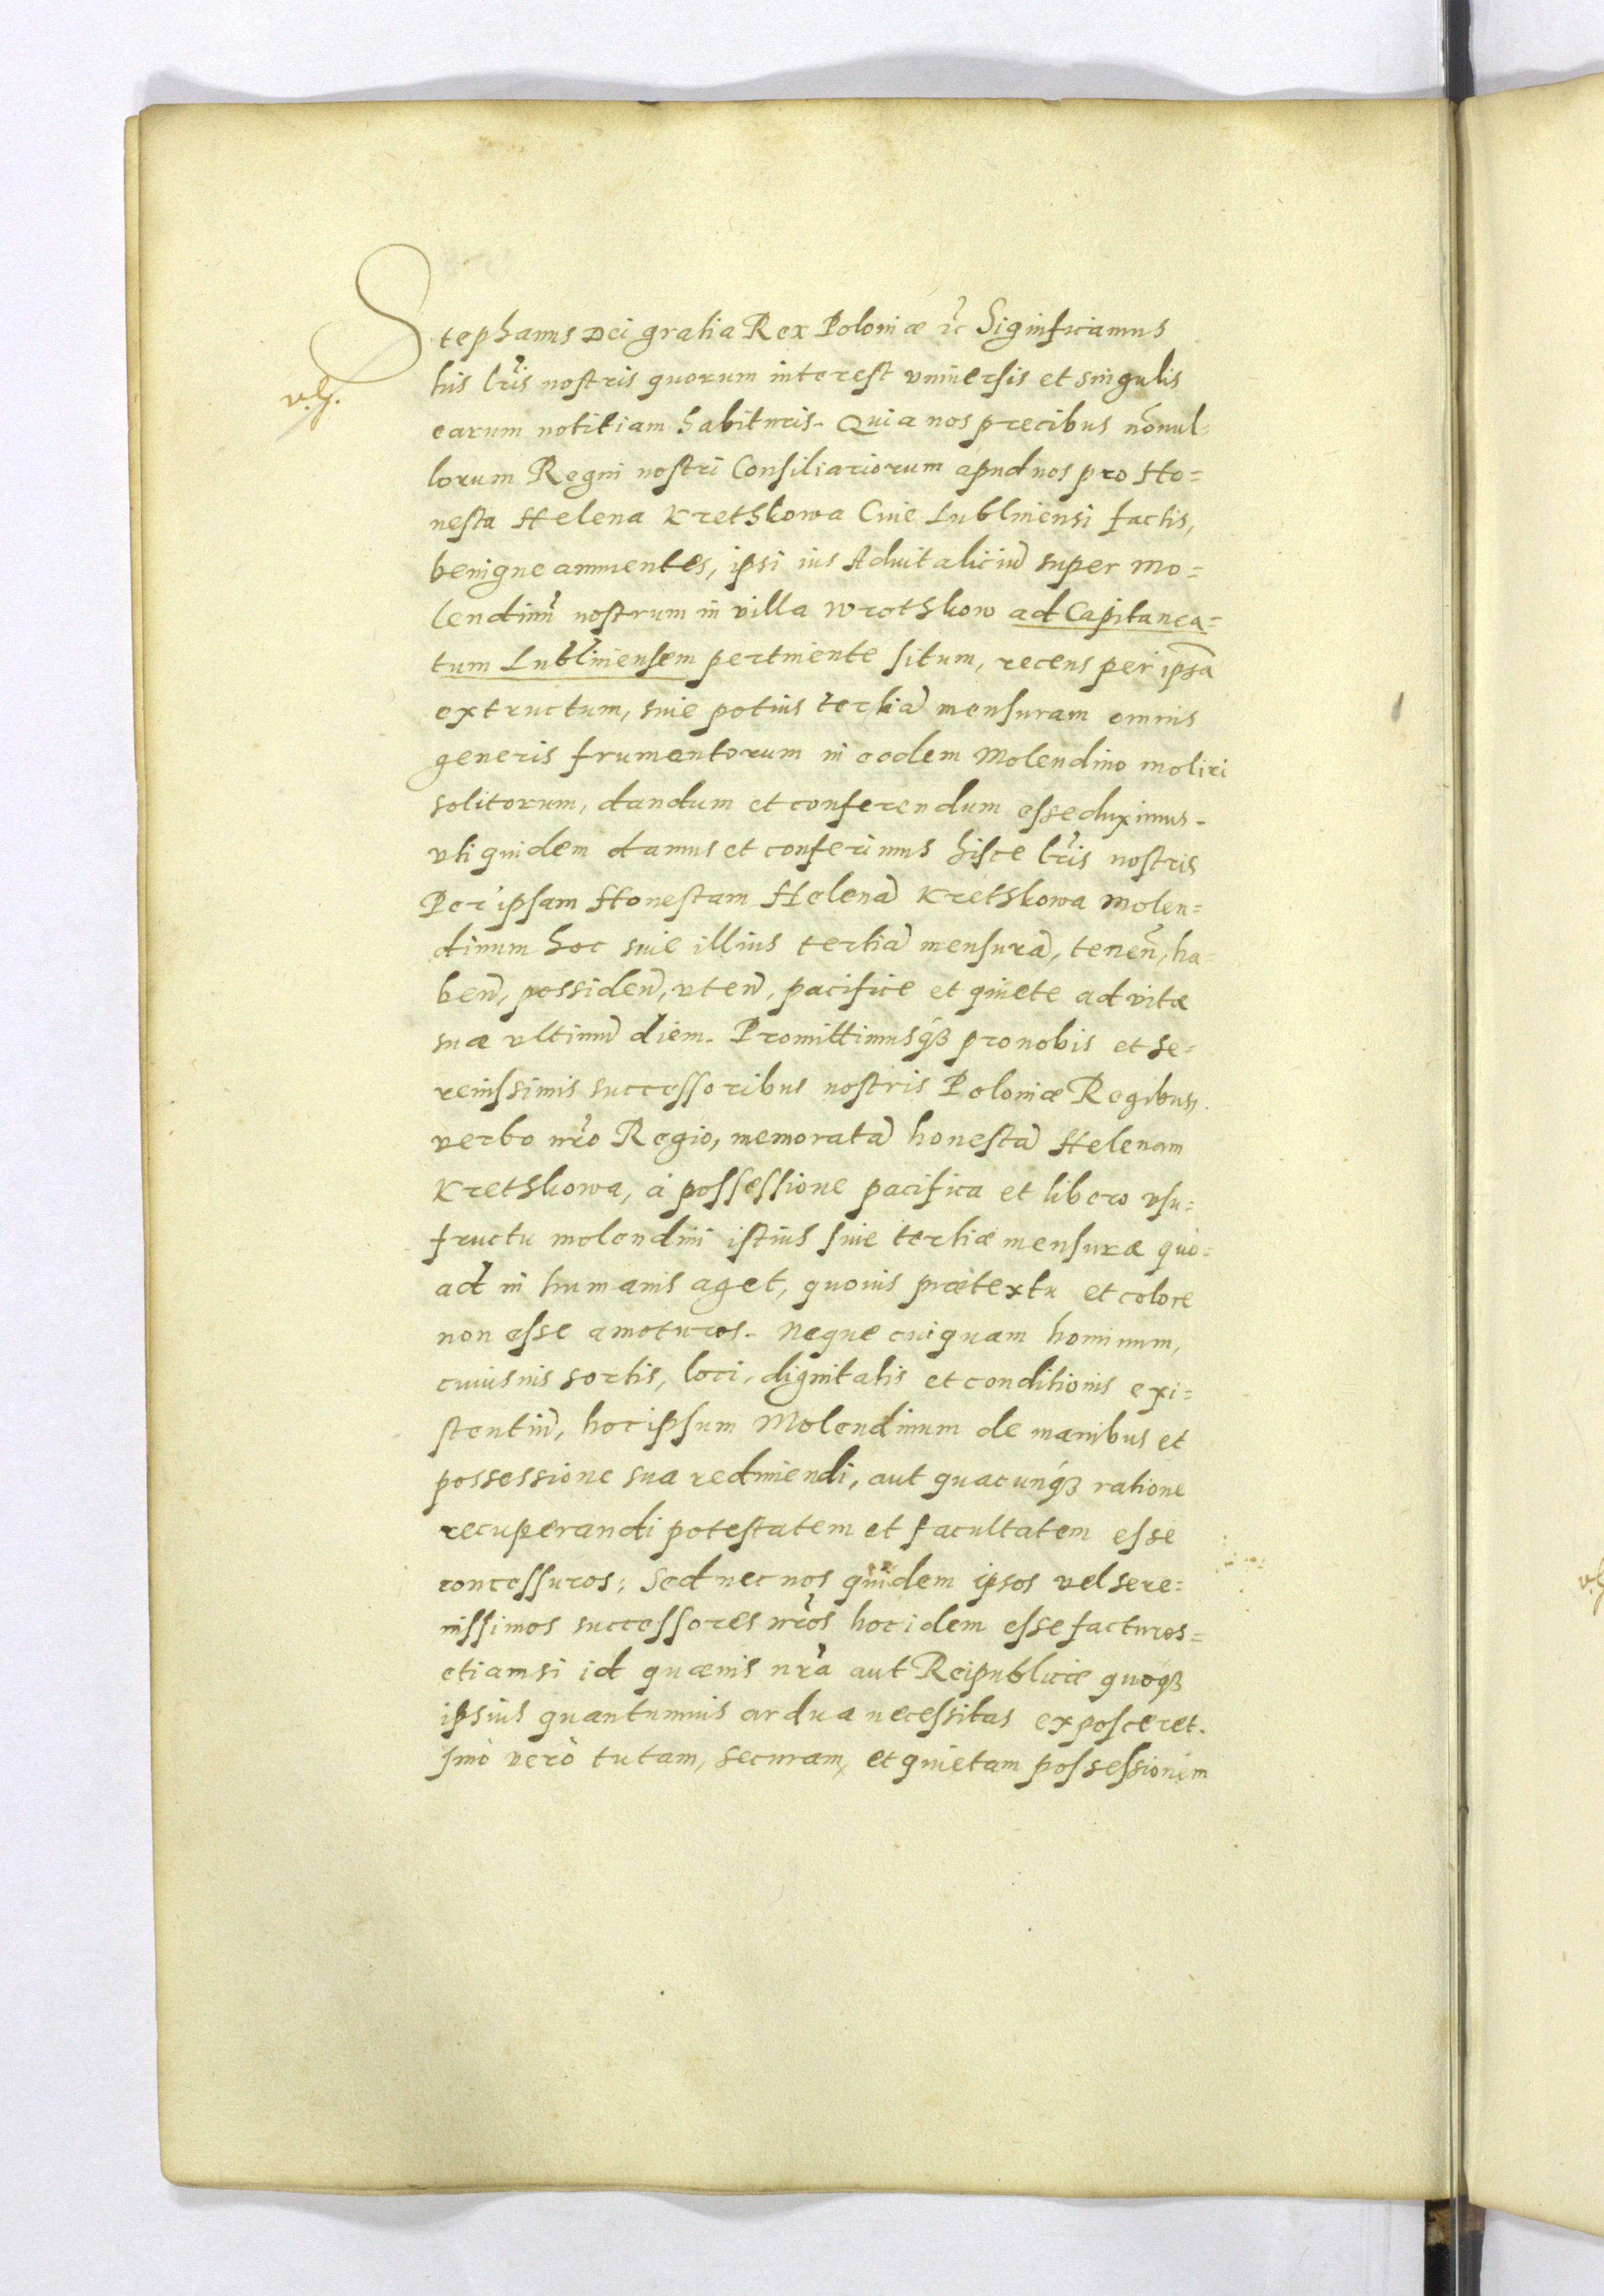 Stephanus Dei gratia Rex Poloniæ &c Significamus
his lr̃is nostris quorum interest vniuersis et singulis
earum notitiam habituris. Quia nos precibus nõnul-
lorum Regni nostri Consiliariorum apud nos pro Ho=
nesta Helena Krethkowa Ciue Lublinensi factis,
benigne annuentes, ipsi ius Aduitaliciũ super Mo=
lendinũ nostrum in villa Wrothkow ad Capitanea=
tum Lublinensem pertinente situm, recens per ipsã
extructum, siue potius tertiã mensuram omnis
generis frumentorum in eodem Molendino moliri
solitorum, dandum et conferendum esse duximus.
vti quidem damus et conferimus hisce lr̃is nostris
Per ipsam Honestam Helenã Krethkowa Molen=
dinum hoc siue illius tertiã mensurã, tenen̄, ha=
ben̄, possiden̄, vten̄, pacifice et quiete ad vitæ
suæ vltimũ diem. Promittimusq̃ꝫ pro nobis et Se=
renissimis successoribus nostris Poloniæ Regibus,
verbo nr̃o Regio, memoratã honestã Helenam
Krethkowa, à possessione pacifica et libero vsu=
fructu molendini istius siue tertiæ mensuræ quo=
ad in humanis aget, quouis prætextu et colore
non esse amoturos. Neque cuiquam hominum,
cuiusuis sortis, loci, dignitatis et conditionis exi=
stentiũ, hoc ipsum Molendinum de manibus et
possessione sua redimendi, aut quacunq́ꝫ ratione
recuperandi potestatem et facultatem esse
concessuros; Sed nec nos quidem ipsos vel sere=
nissimos successores nr̃os hoc idem esse facturos=
etiamsi id quæuis nr̃a aut Reipublicæ quoq́ꝫ
ipsius quantumuis ardua necessitas exposceret.
Imò verò tutam, securam, et quietam possessionem